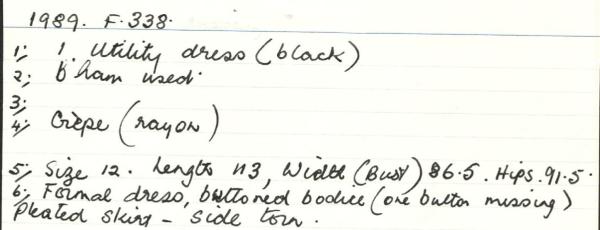 1989. F.338.
1; 1. Utility dress (black)
2; B'ham used.
3;
4; Crêpe (rayon)
5; Size 12. Length 113, Width (Bust) 86.5. Hips. 91.5.
6; Formal dress, buttoned bodice (one button missing)
Pleated skirt - side torn.